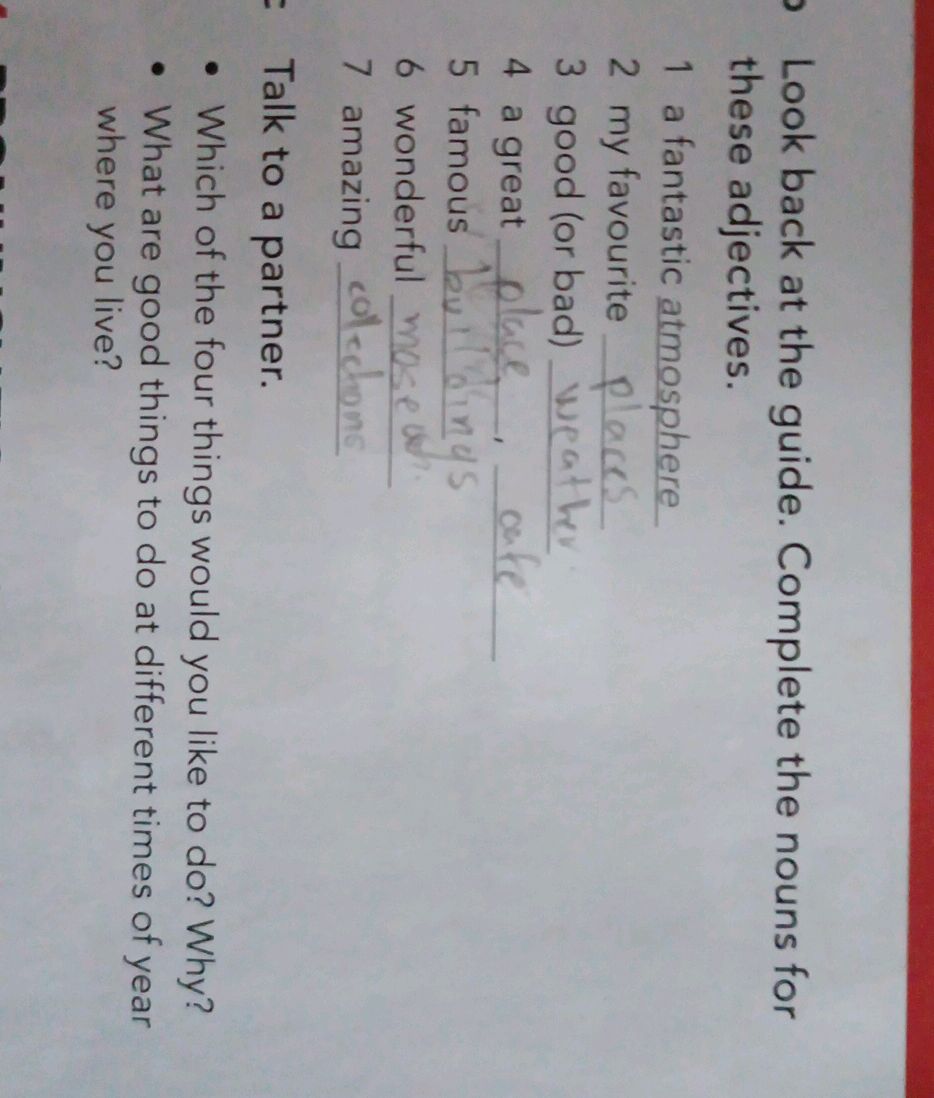 Look back at the guide. Complete the nouns for
these adjectives.
1 a fantastic atmosphere
2 my favourite places
3 good (or bad) weather.
4 a great place, cafe
5 famous buildings
6 wonderful
7 amazing colections
Talk to a partner.
• Which of the four things would you like to do? Why?
• What are good things to do at different times of year
where you live?